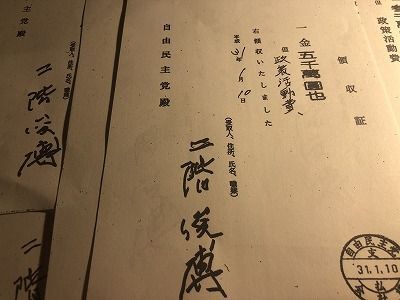 政策活動費
領収証
一金五千萬圓也
但政策活動費、
右領収いたしました
平成31年1月10日
(受取人、住所、氏名、職業)
二階俊博
自由民主党殿
自由民主党
31.1.10
(受取人、住所、氏名、職業)
二階俊博
由民主党殿
二階